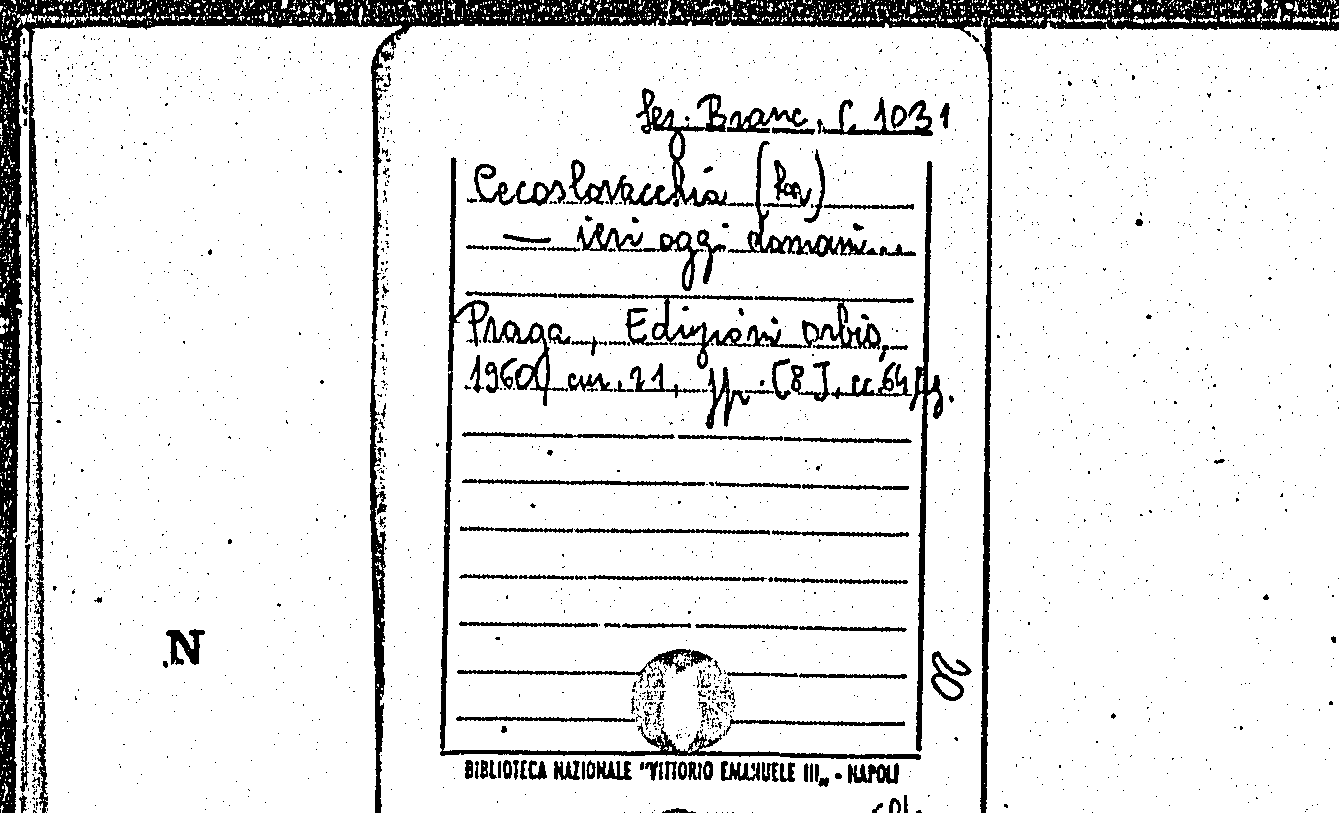 Sez. Branc. C. 1031
Cecoslovacchia (La)
— ieri oggi domani...
Praga, Edizioni Orbis,
1960, cm. 21, pp. [8], cc. 64 fg.
N
20
BIBLIOTECA NAZIONALE "VITTORIO EMANUELE III" - NAPOLI